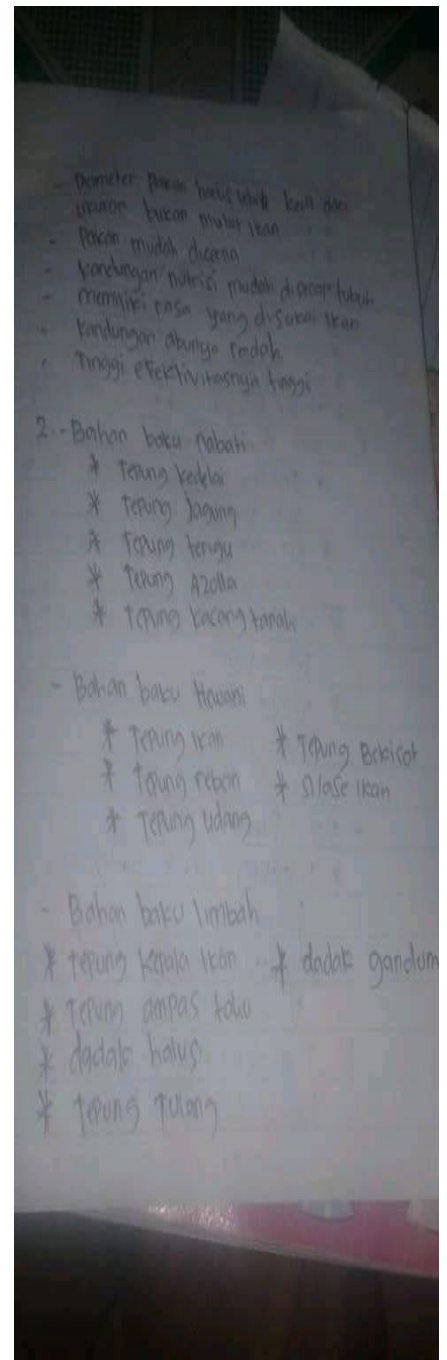 - Diameter Pakan harus lebih kecil dari
ukuran bukan mulut ikan
- Pakan mudah dicerna
- kandungan nutrisi mudah diserap tubuh
- memiliki rasa yang disukai ikan
- kandungan abunya rendah
- Tinggi efektivitasnya tinggi
2. - Bahan baku nabati
* Tepung kedelai
* Tepung Jagung
* Tepung terigu
* Tepung Azolla
* Tepung kacang tanah
- Bahan baku Hewani
* Tepung ikan * Tepung Bekicot
* Tepung rebon * Silase ikan
* Tepung udang
- Bahan baku limbah
* tepung kepala ikan * dadak gandum
* Tepung ampas tahu
* dadak halus
* tepung tulang